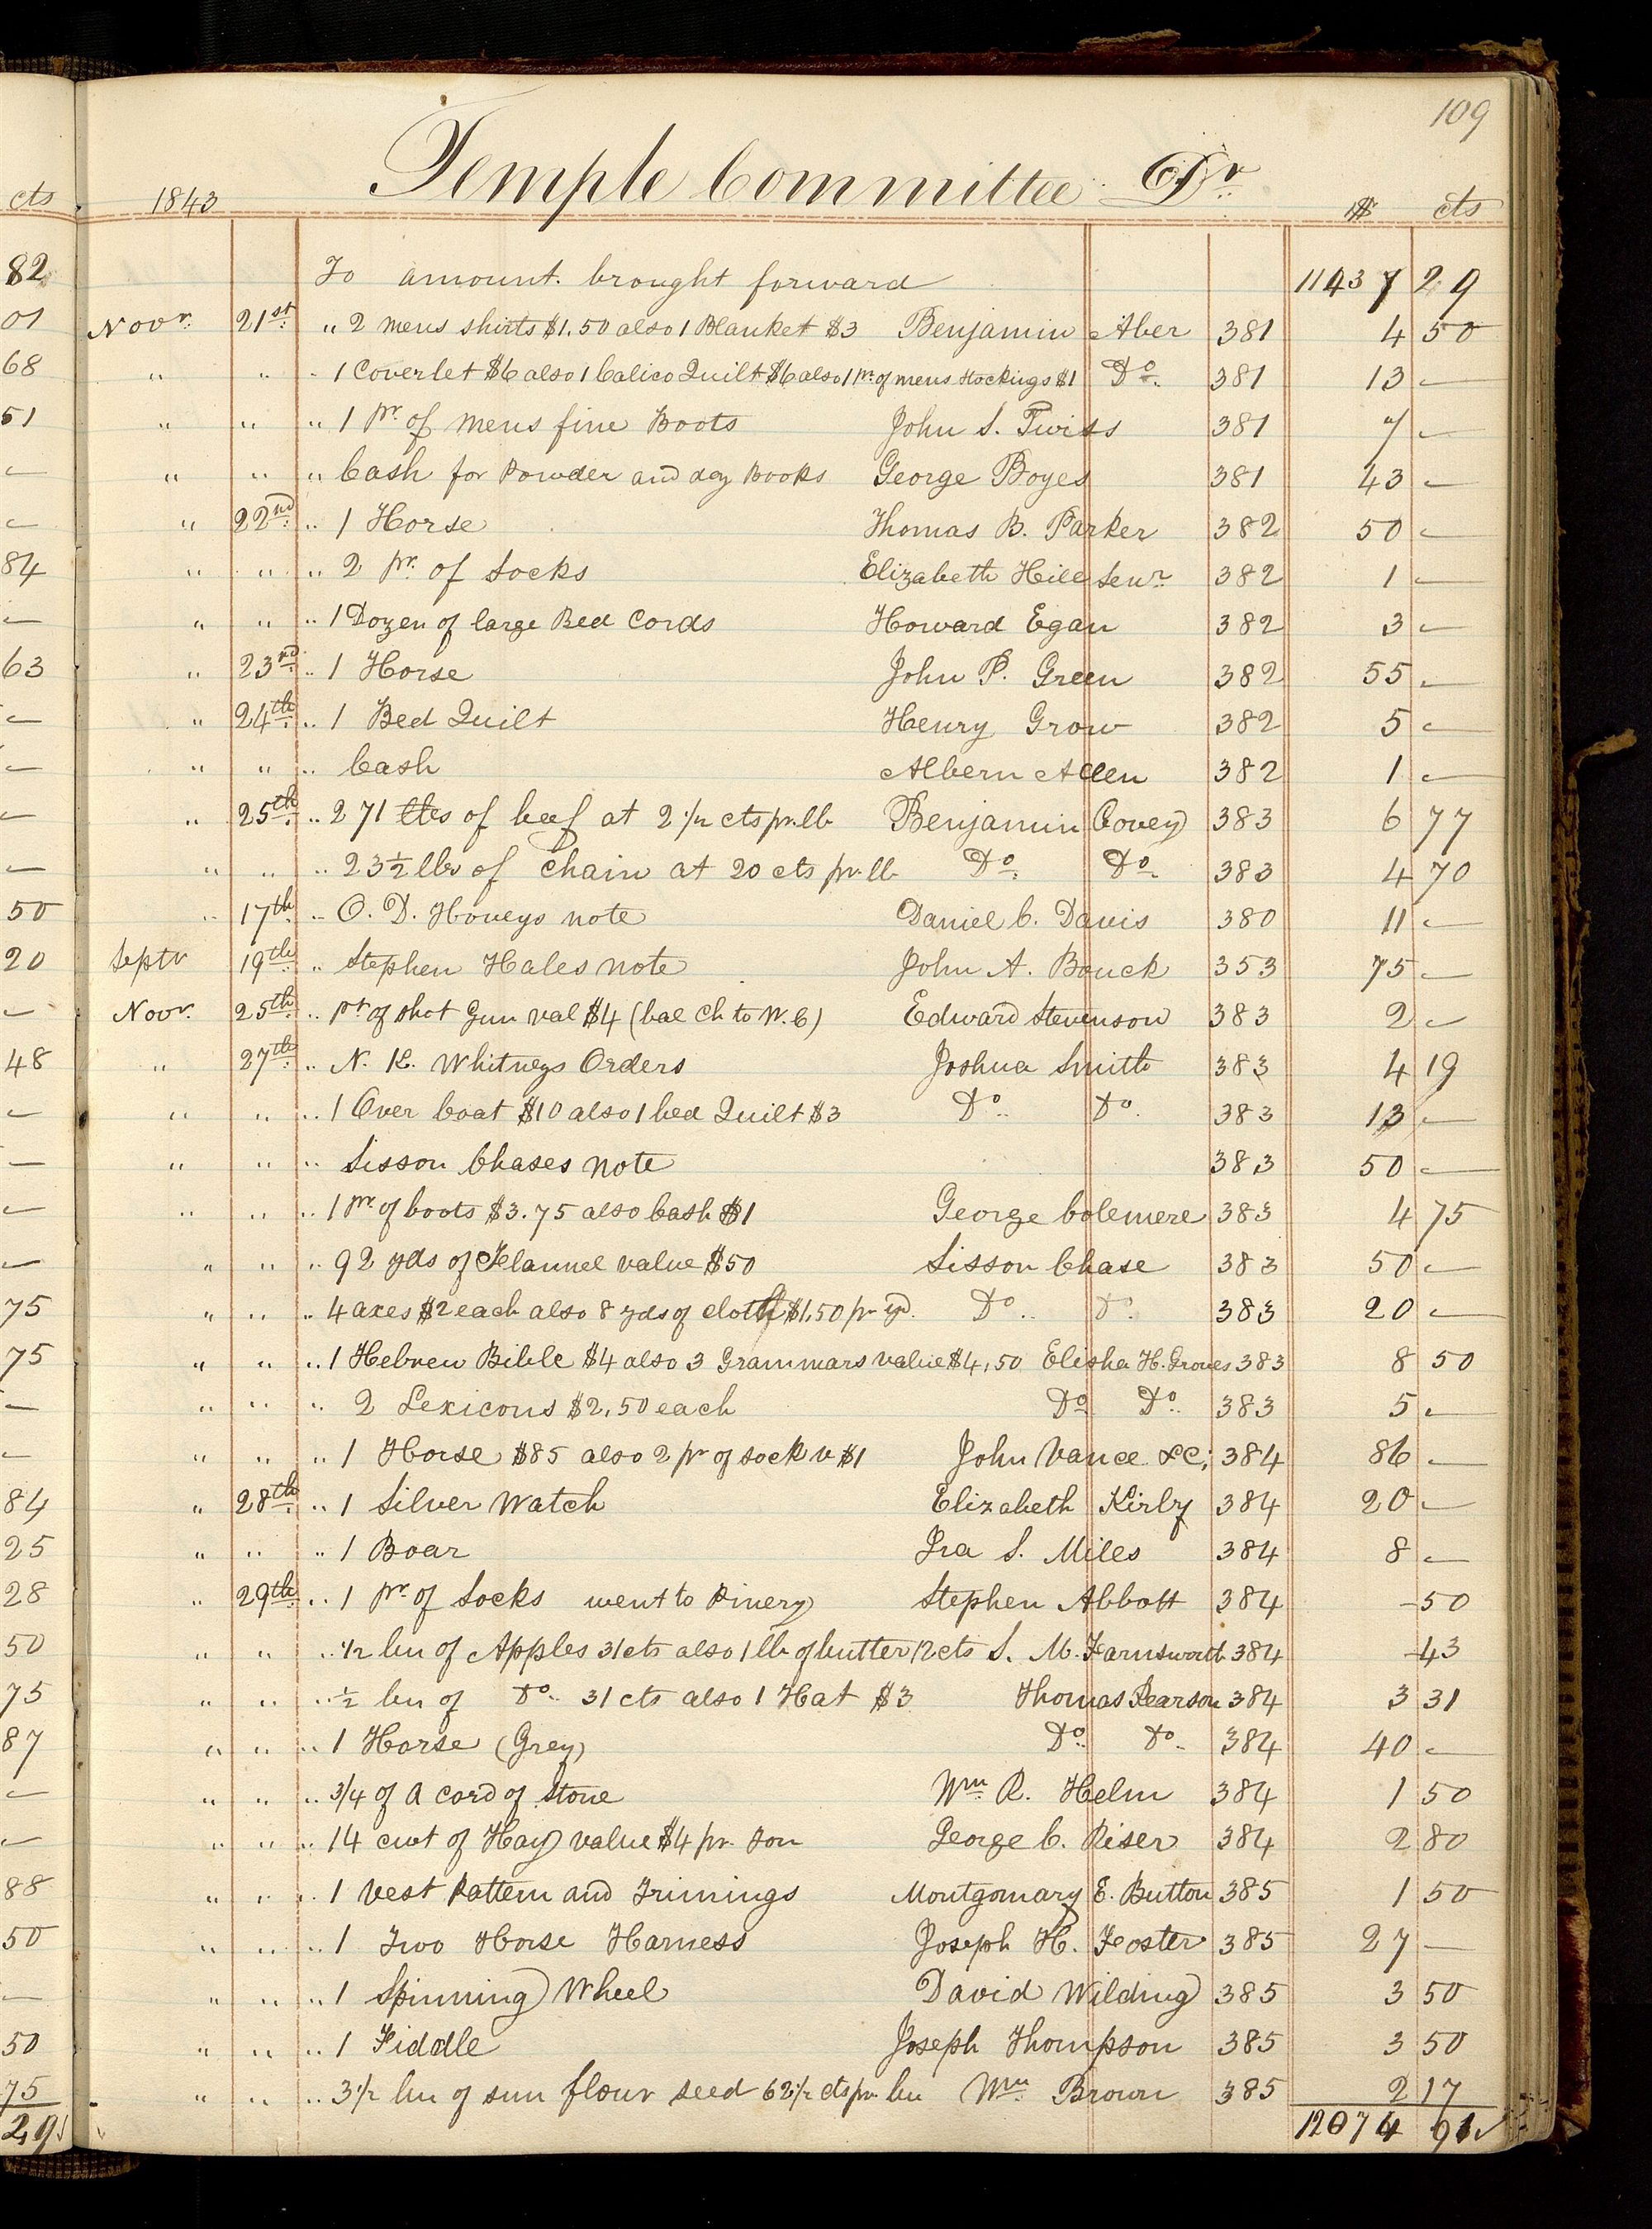 109
Temple Committee Dr.
cts 1843 $ cts
82 To amount brought forward 11437 29
01 Novr. 21st. " 2 mens shirts $1.50 also 1 Blanket $3 Benjamin Aber 381 4 50
68 " " " 1 Coverlet $6 also 1 Calico Quilt $6 also 1 pr. of mens stockings $1 Do. 381 13 —
51 " " " 1 pr. of mens fine Boots John S. Twiss 381 7 —
— " " " Cash for Powder and day Books George Boyes 381 43 —
— " 22nd. " 1 Horse Thomas B. Parker 382 50 —
84 " " " 2 pr. of Socks Elizabeth Hill Senr. 382 1 —
— " " " 1 Dozen of large Bed Cords Howard Egan 382 3 —
63 " 23rd. " 1 Horse John P. Green 382 55 —
— " 24th. " 1 Bed Quilt Henry Grow 382 5 —
— " " " Cash Albern Allen 382 1 —
— " 25th. " 271 lbs of beef at 2 1/2 cts pr. lb Benjamin Covey 383 6 77
— " " " 23 1/2 lbs of chain at 20 cts pr. lb Do. Do. 383 4 70
50 " 17th. " O. D. Hoveys note Daniel C. Davis 380 11 —
20 Septr 19th. " Stephen Hales note John A. Bouck 353 75 —
— Novr. 25th. " pt of shot Gun val $4 (bal Ch to W. C) Edward Stevenson 383 2 —
48 " 27th. " N. K. Whitneys Orders Joshua Smith 383 4 19
— " " " 1 Over Coat $10 also 1 bed Quilt $3 Do. Do. 383 13 —
— " " " Sisson Chases note 383 50 —
— " " " 1 pr. of boots $3.75 also Cash $1 George Colemere 383 4 75
— " " " 92 yds of Flannel value $50 Sisson Chase 383 50 —
75 " " " 4 axes $2 each also 8 yds of cloth $1.50 pr yd. Do. Do. 383 20 —
75 " " " 1 Hebrew Bible $4 also 3 Grammars value $4.50 Elisha H. Groves 383 8 50
— " " " 2 Lexicons $2.50 each Do. Do. 383 5 —
— " " " 1 Horse $85 also 2 pr of sock v $1 John Vance &C; 384 86 —
84 " 28th. " 1 Silver Watch Elizabeth Kirby 384 20 —
25 " " " 1 Boar Ira S. Miles 384 8 —
28 " 29th. " 1 pr. of Socks went to Pinery Stephen Abbott 384 - 50
50 " " " 1/2 bu of Apples 31 cts also 1 lb of butter 12 cts S. M. Farnsworth 384 - 43
75 " " " 1/2 bu of Do. 31 cts also 1 Hat $3 Thomas Pearson 384 3 31
87 " " " 1 Horse (Grey) Do. Do. 384 40 —
— " " " 3/4 of a cord of Stone Wm. R. Helm 384 1 50
— " " " 14 cwt of Hay value $4 pr. ton George C. Riser 384 2 80
88 " " " 1 vest Pattern and Trimings Montgomary E. Button 385 1 50
50 " " " 1 Two Horse Harness Joseph H. Foster 385 27 —
— " " " 1 Spinning Wheel David Wilding 385 3 50
50 " " " 1 Fiddle Joseph Thompson 385 3 50
75 " " " 3 1/2 bu of sun flour seed 62 1/2 cts pr. bu Wm. Brown 385 2 17
29 12074 91